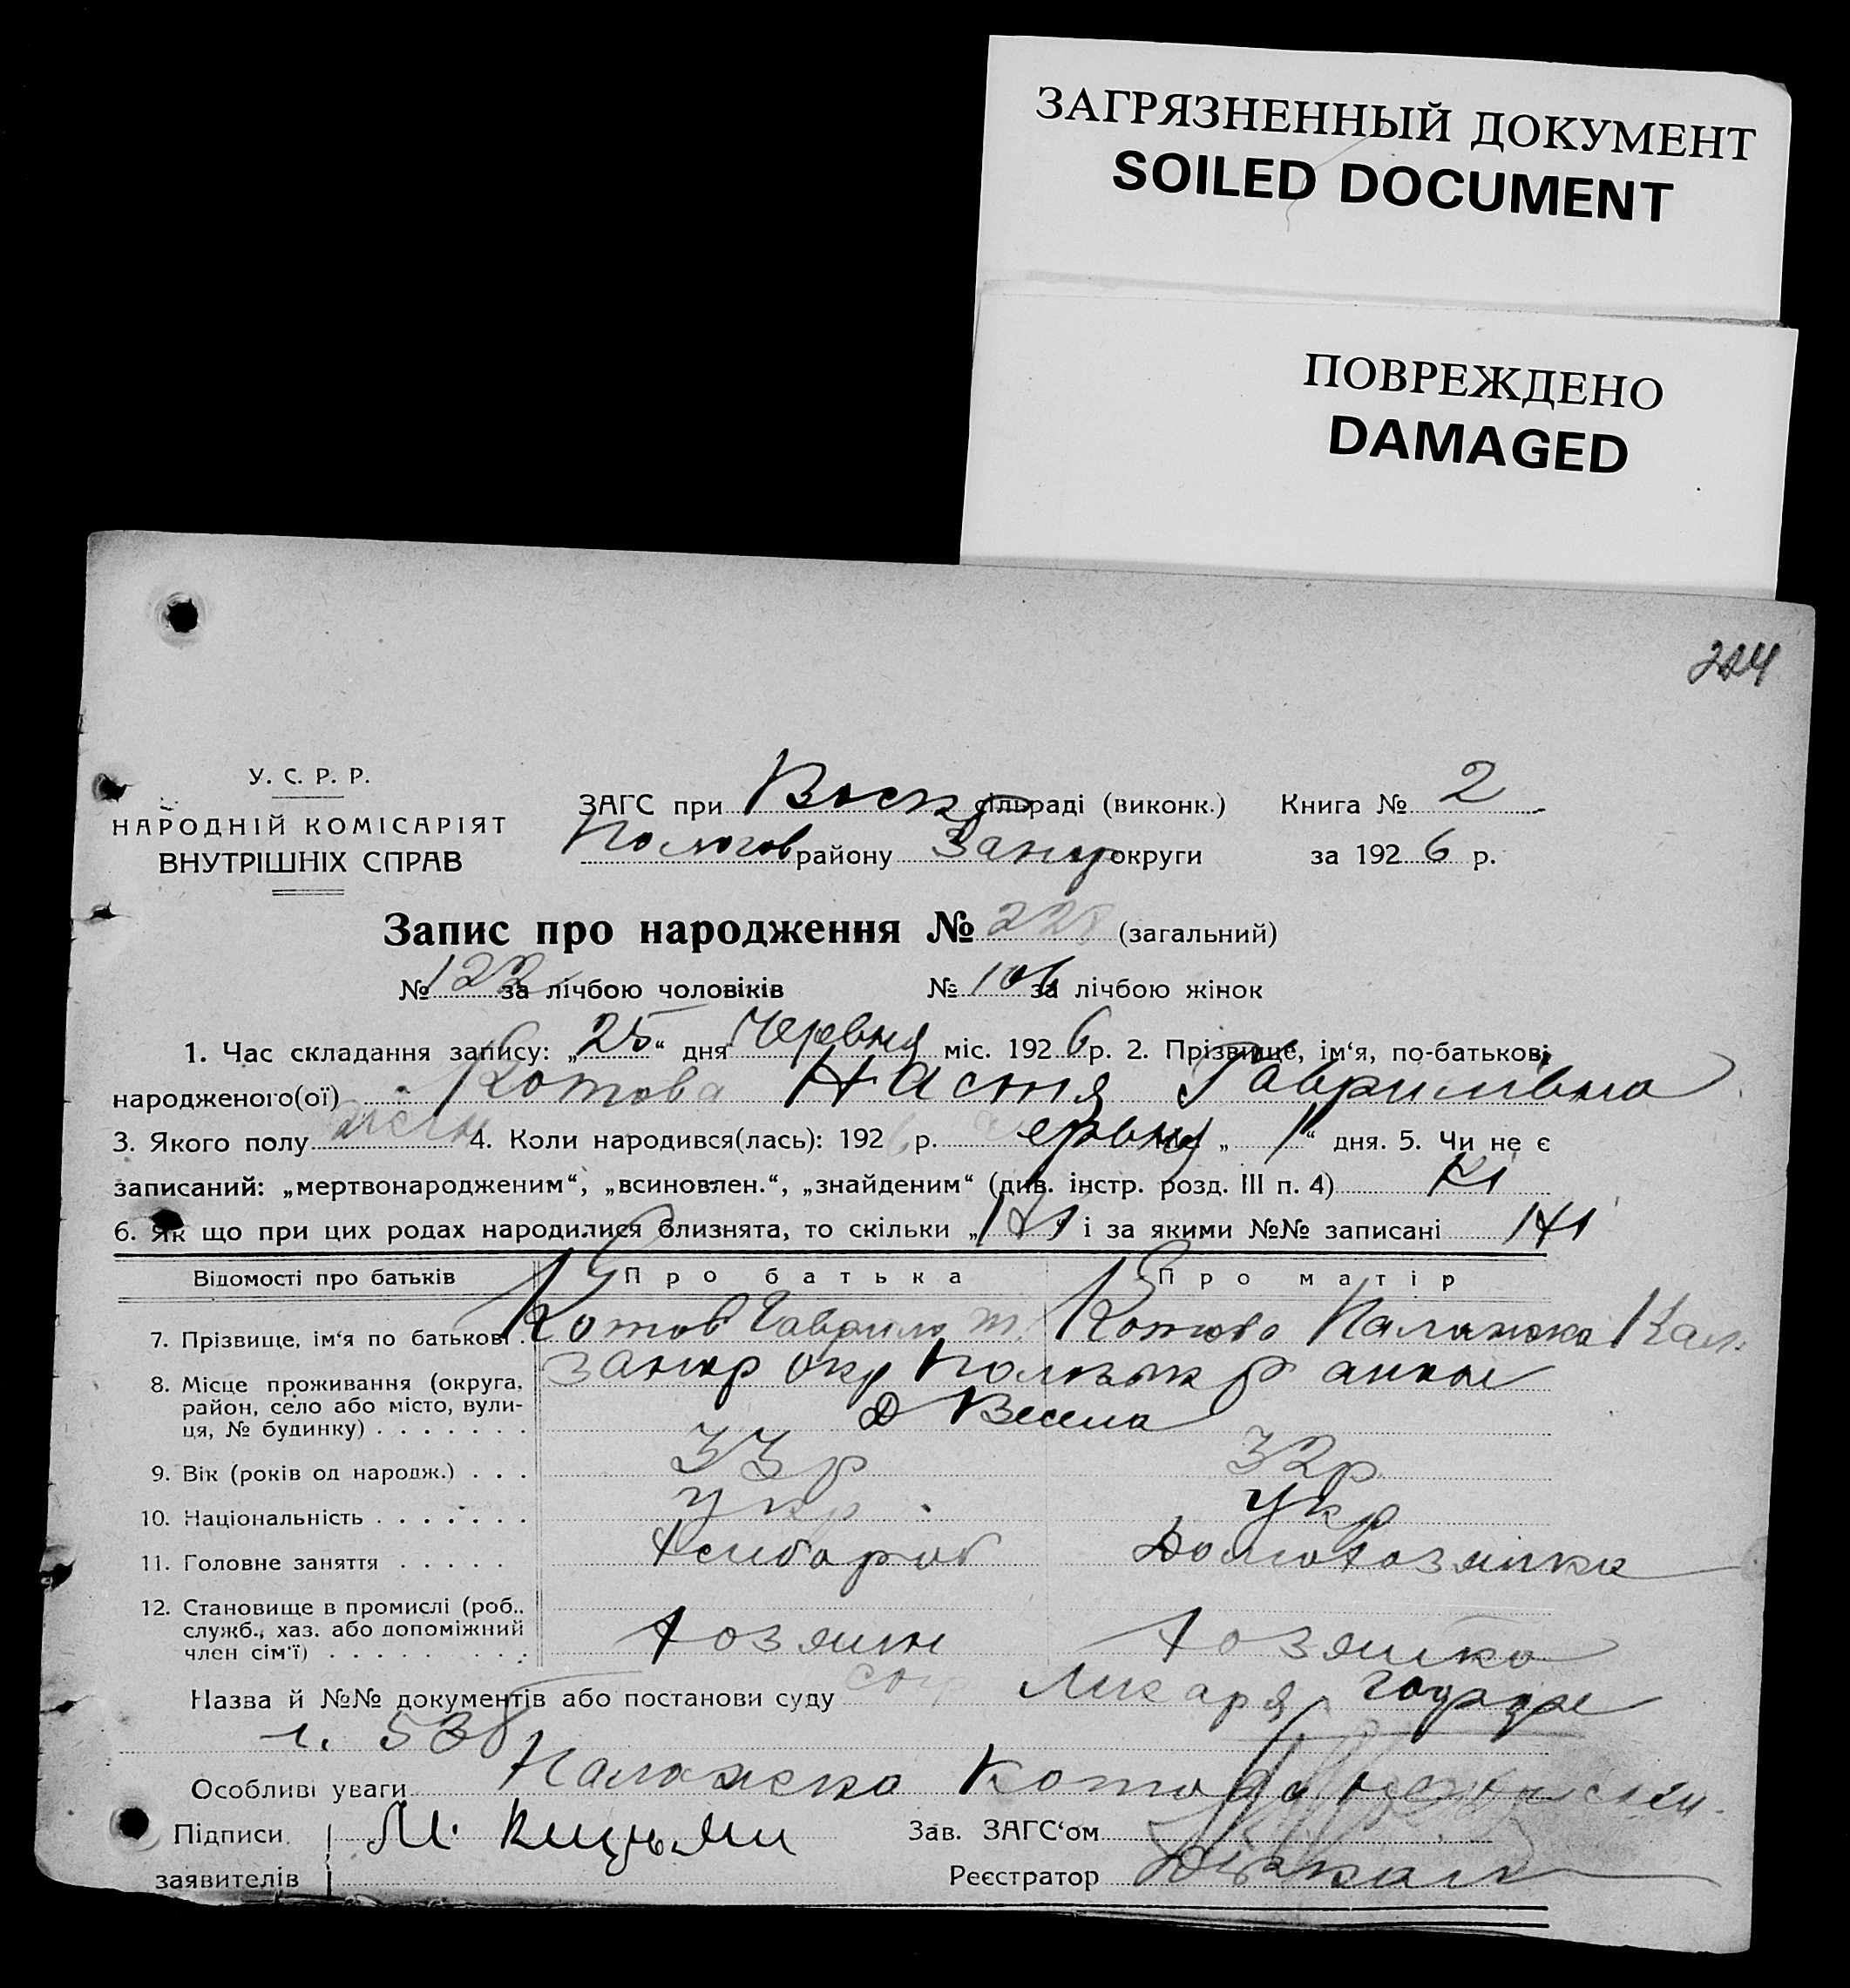 ЗАГРЯЗНЕННЫЙ ДОКУМЕНТ
SOILED DOCUMENT
ПОВРЕЖДЕНО
DAMAGED
У. С. Р. Р.
НАРОДНІЙ КОМІСАРІЯТ
ВНУТРІШНІХ СПРАВ
ЗАГС при Воскр сільраді (виконк.) Книга № 2
Пологов району Запор округи за 1926 р.
Запис про народження № 228 (загальний)
№ 122 за лічбою чоловіків № 106 за лічбою жінок
1. Час складання запису: „25“ дня Червня міс. 1926 р. 2. Прізвище, ім‘я, по-батькові
народженого(ої) Котова Настя Гаврилівна
3. Якого полу 4. Коли народився(лась): 1926 р. червня „1“ дня. 5. Чи не є
записаний: „мертвонародженим“, „всиновлен.“, „знайденим“ (див. інстр. розд. III п. 4) Ні
6. Як що при цих родах народилися близнята, то скільки „Ні“ і за якими №№ записані Ні
Відомості про батьків Про батька Про матір
7. Прізвище, ім‘я по батькові Котов Гаврило Котова Палажка
8. Місце проживання (округа, Запор окр
район, село або місто, вули-
ця, № будинку) Д Весела
9. Вік (років од народж.) 33 р 32 р
10. Національність укр укр
11. Головне заняття Хлібороб Домохозяйка
12. Становище в промислі (роб.,
служб., хаз. або допоміжний
член сім‘ї) хозяин хозяйка
Назва й №№ документів або постанови суду Ликаря
538
Особливі уваги Палажка Котова
Підписи М.
заявителів
Зав. ЗАГС‘ом
Реєстратор